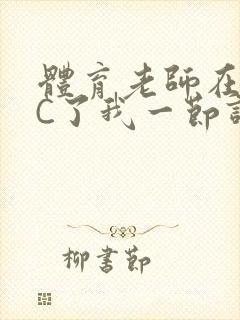 體育老師在
C了我一節
柳書節